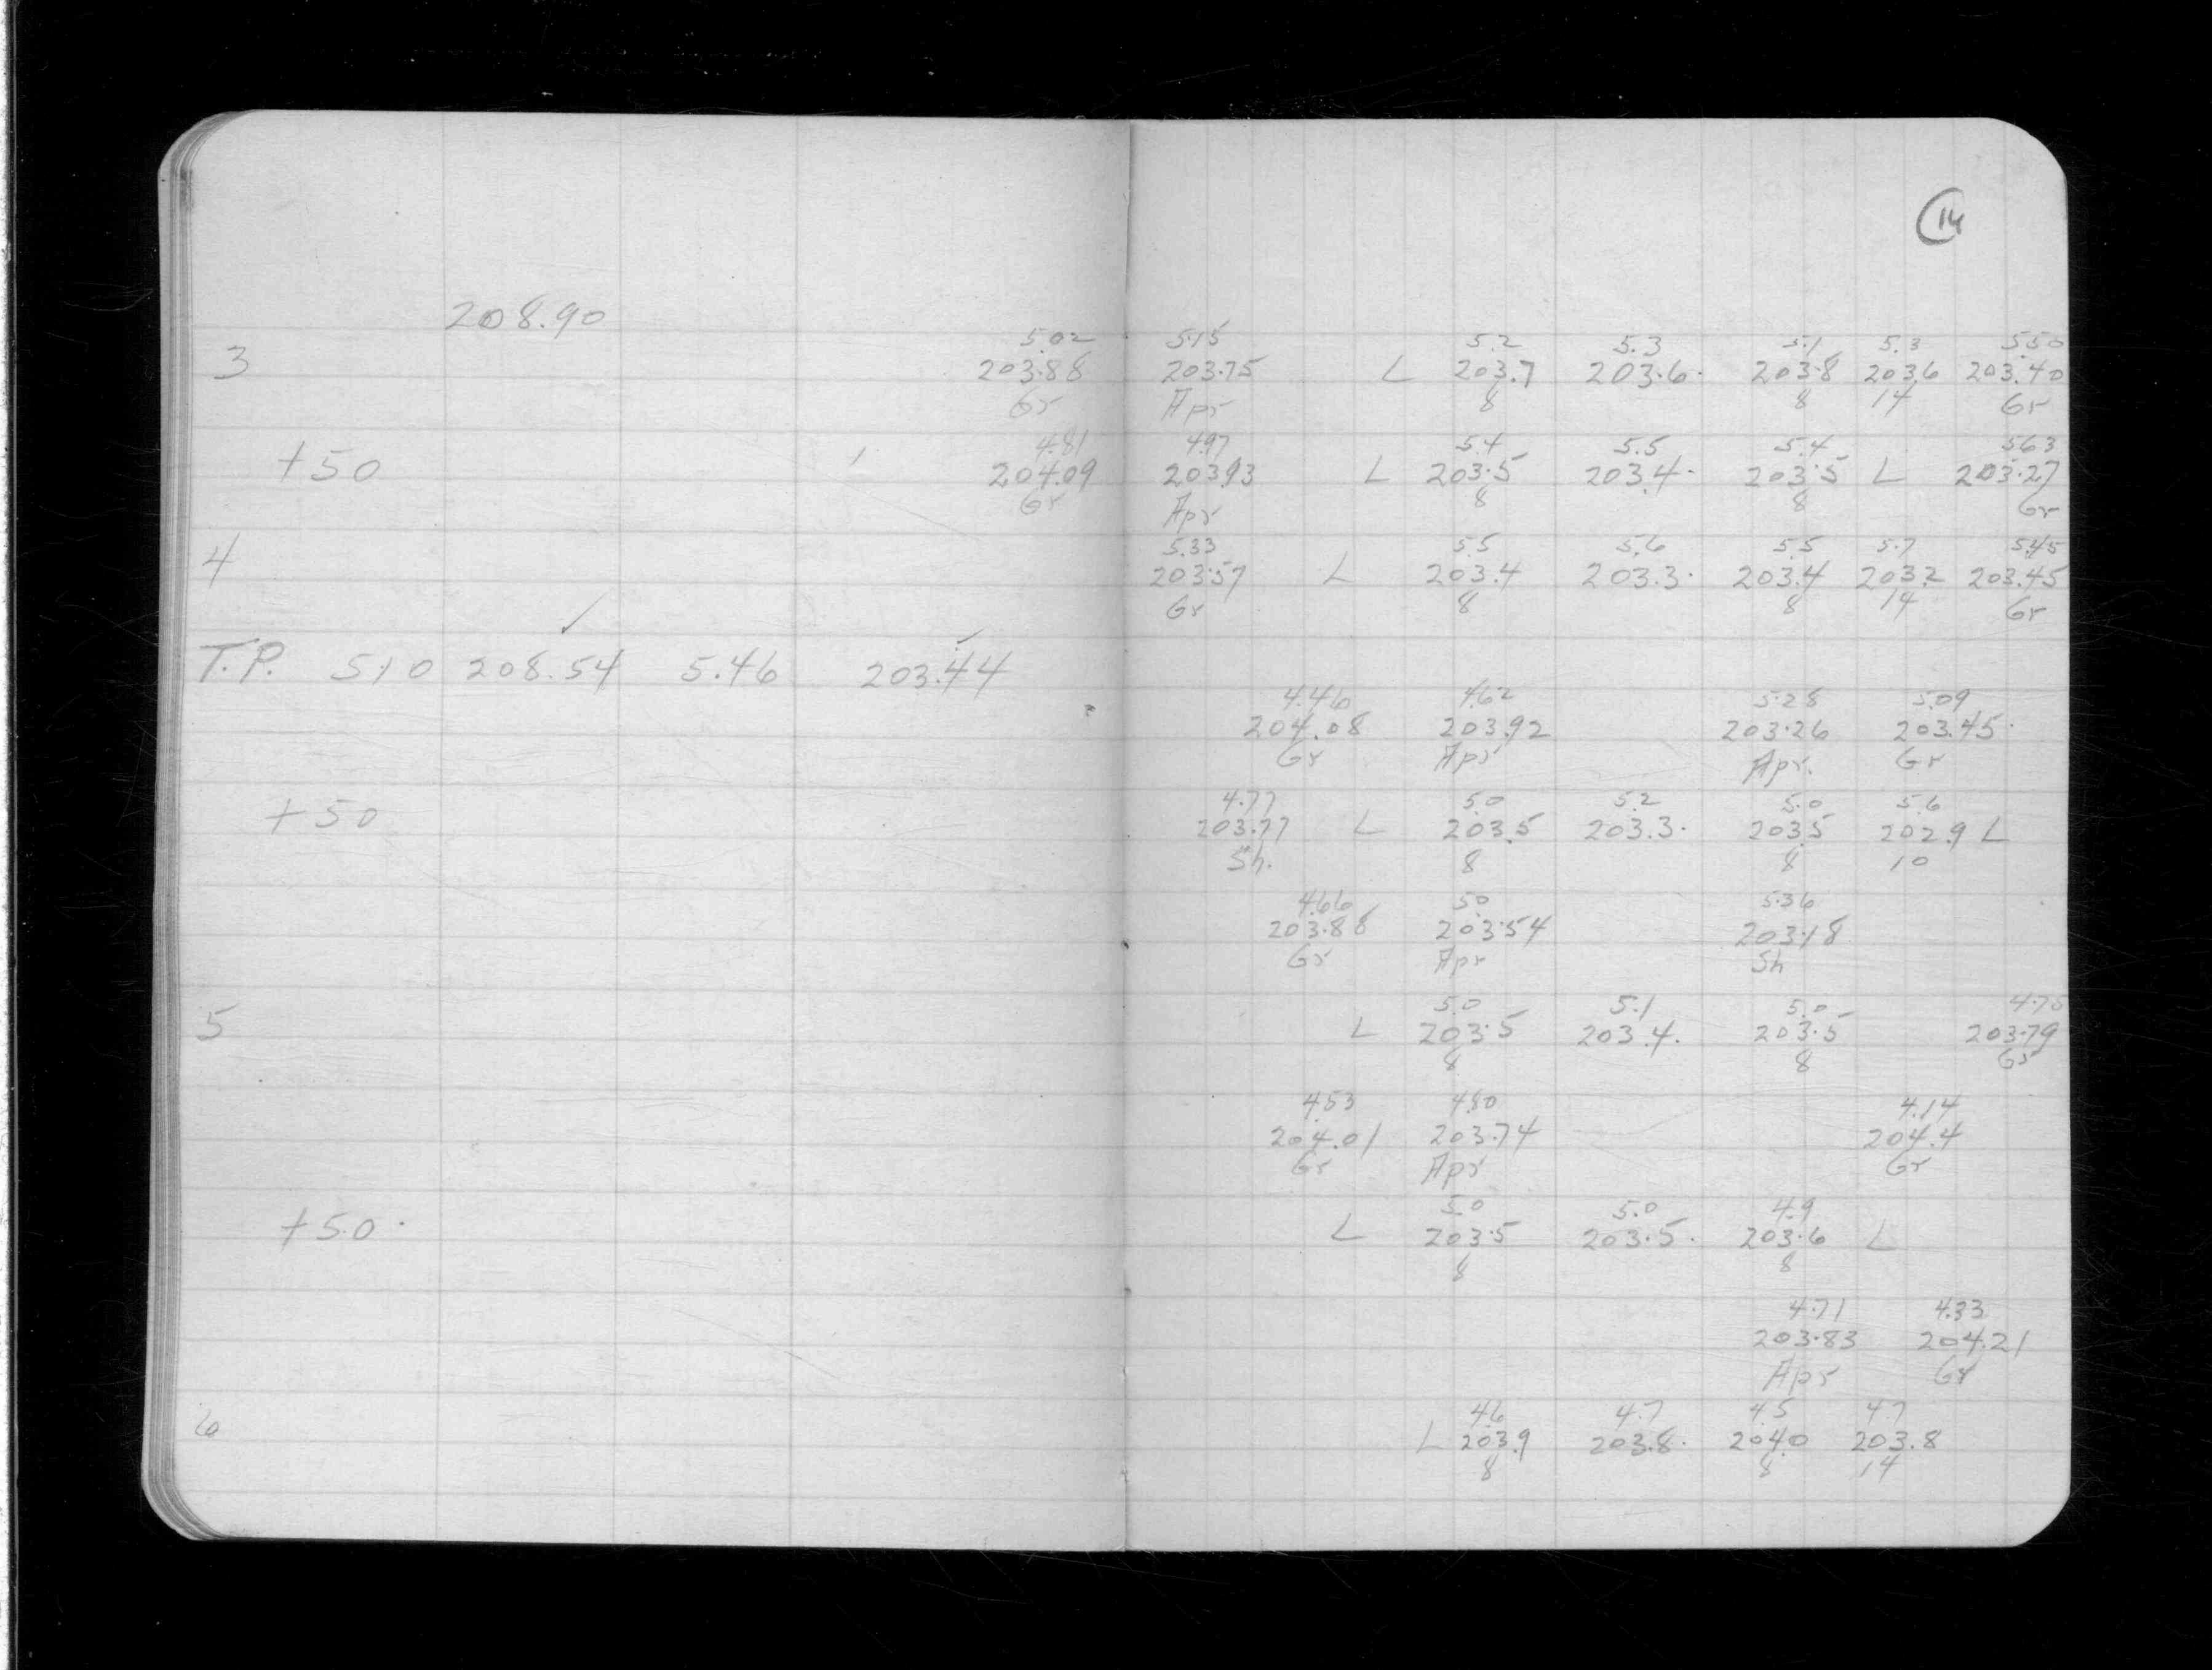 14
208.90
5.02 5.15 5.2 5.3 5.1 5.3 5.50
3 203.88 203.75 L 203.7 203.6. 203.8 203.6 203.40
Gr Apr 8 8 14 Gr
4.81 4.97 5.4 5.5 5.4 5.63
+50 204.09 203.93 L 203.5 203.4. 203.5 L 203.27
Gr Apr 8 8 Gr
5.33 5.5 5.6 5.5 5.7 5.45
4 203.57 L 203.4 203.3. 203.4 203.2 203.45
Gr 8 8 14 Gr
T.P. 5.10 208.54 5.46 203.44
4.46 4.62 5.28 5.09
204.08 203.92 203.26 203.45.
Gr Apr Apr. Gr
4.77 5.0 5.2 5.0 5.6
+50 203.77 L 203.5 203.3. 203.5 202.9 L
Sh. 8 8 10
4.66 5.0 5.36
203.88 203.54 203.18
Gr Apr Sh
5.0 5.1 5.0 4.75
5 L 203.5 203.4. 203.5 203.79
8 8 Gr
4.53 4.80 4.14
204.01 203.74 204.4
Gr Apr Gr
5.0 5.0 4.9
+50. L 203.5 203.5. 203.6 L
8 8
4.71 4.33
203.83 204.21
Apr Gr
4.6 4.7 4.5 4.7
6 L 203.9 203.8. 204.0 203.8
8 8 14